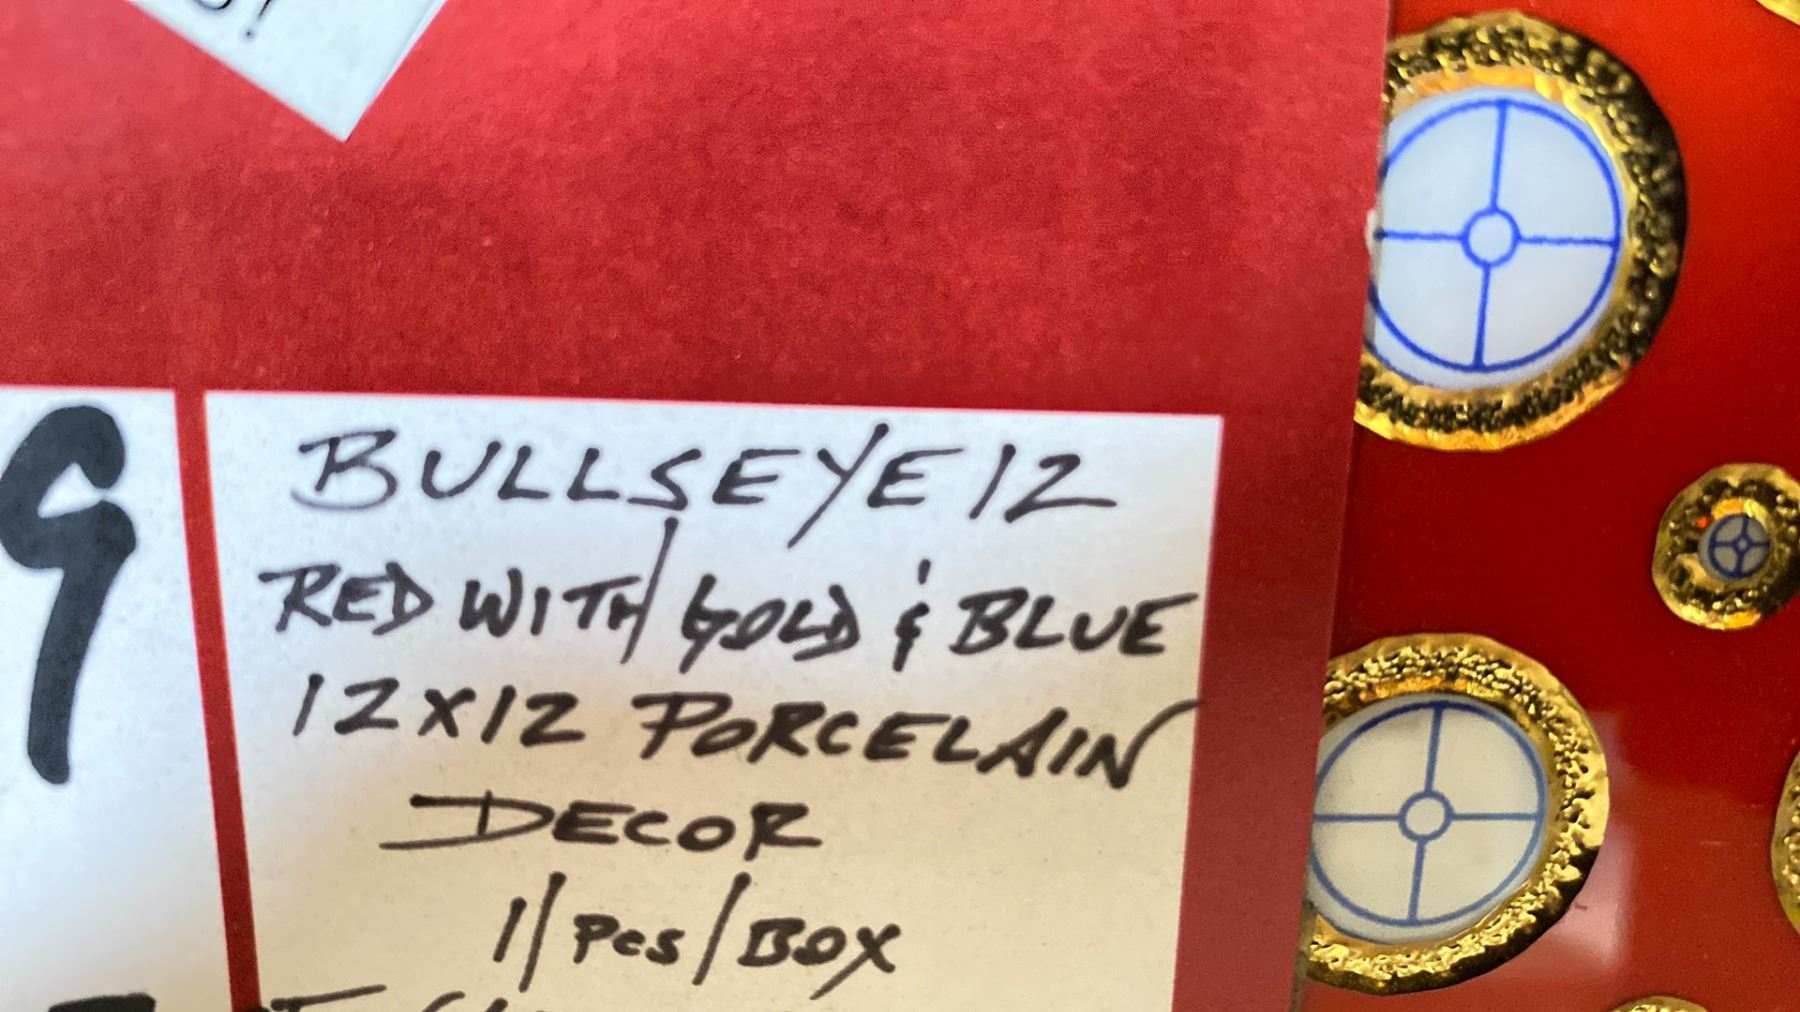 9
BULLSEYE 12
RED WITH GOLD & BLUE
12X12 PORCELAIN
DECOR
1/PCS/BOX